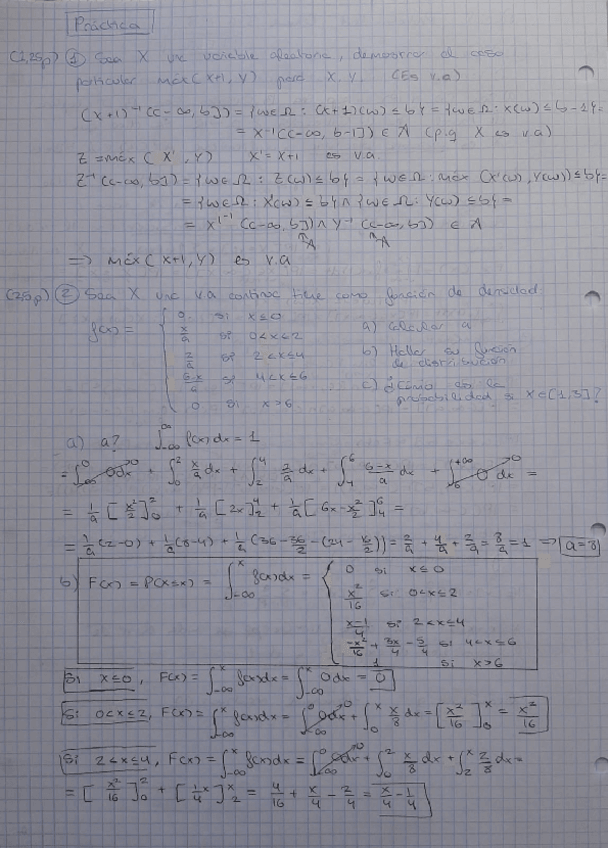 Práctica
(1,25p) ① Sea X una variable aleatoria, demostrar el caso
particular máx(X+1, Y) para X, Y. (Es v.a)
(X+1)⁻¹((-∞, b]) = {w∈Ω : (X+1)(w) ≤ b} = {w∈Ω : X(w) ≤ b-1} =
= X⁻¹((-∞, b-1]) ∈ A (p.q X es v.a)
Z = máx(X', Y) X' = X+1 es v.a
Z⁻¹((-∞, b]) = {w∈Ω : Z(w) ≤ b} = {w∈Ω : máx(X'(w), Y(w)) ≤ b} =
= {w∈Ω : X'(w) ≤ b} ∩ {w∈Ω : Y(w) ≤ b} =
= X'⁻¹((-∞, b]) ∩ Y⁻¹((-∞, b]) ∈ A
∈A ∈A
⇒ máx(X+1, Y) es v.a
(2,5p) ② Sea X una v.a continua tiene como función de densidad:
f(x) =
0 si x≤0
x/a si 0<x≤2
2/a si 2<x≤4
6-x/6 si 4<x≤6
0 si x>6
a) Calcular a
b) Hallar su función de distribución
c) ¿Cómo es la probabilidad si X∈[1,3]?
a) a? ∫_{-∞}^{∞} f(x)dx = 1
= ∫_{-∞}^{0} 0dx + ∫_0^2 x/a dx + ∫_2^4 2/a dx + ∫_4^6 6-x/a dx + ∫_6^{+∞} 0 dx =
= 1/a [x²/2]_0^2 + 1/a [2x]_2^4 + 1/a [6x - x²/2]_4^6 =
= 1/a (2-0) + 1/a (8-4) + 1/a (36 - 36/2 - (24 - 16/2)) = 2/a + 4/a + 2/a = 8/a = 1 ⇒ a=8
b) F(x) = P(X≤x) = ∫_{-∞}^x f(x)dx =
0 si x≤0
x²/16 si 0<x≤2
x-1/4 si 2<x≤4
-x²/16 + 3x/4 - 5/4 si 4<x≤6
1 si x>6
Si x≤0, F(x) = ∫_{-∞}^x f(x)dx = ∫_{-∞}^x 0dx = 0
Si 0<x≤2, F(x) = ∫_{-∞}^x f(x)dx = ∫_{-∞}^0 0dx + ∫_0^x x/8 dx = [x²/16]_0^x = x²/16
Si 2<x≤4, F(x) = ∫_{-∞}^x f(x)dx = ∫_{-∞}^0 0dx + ∫_0^2 x/8 dx + ∫_2^x 2/8 dx =
= [x²/16]_0^2 + [1/4 x]_2^x = 4/16 + x/4 - 2/4 = x/4 - 1/4